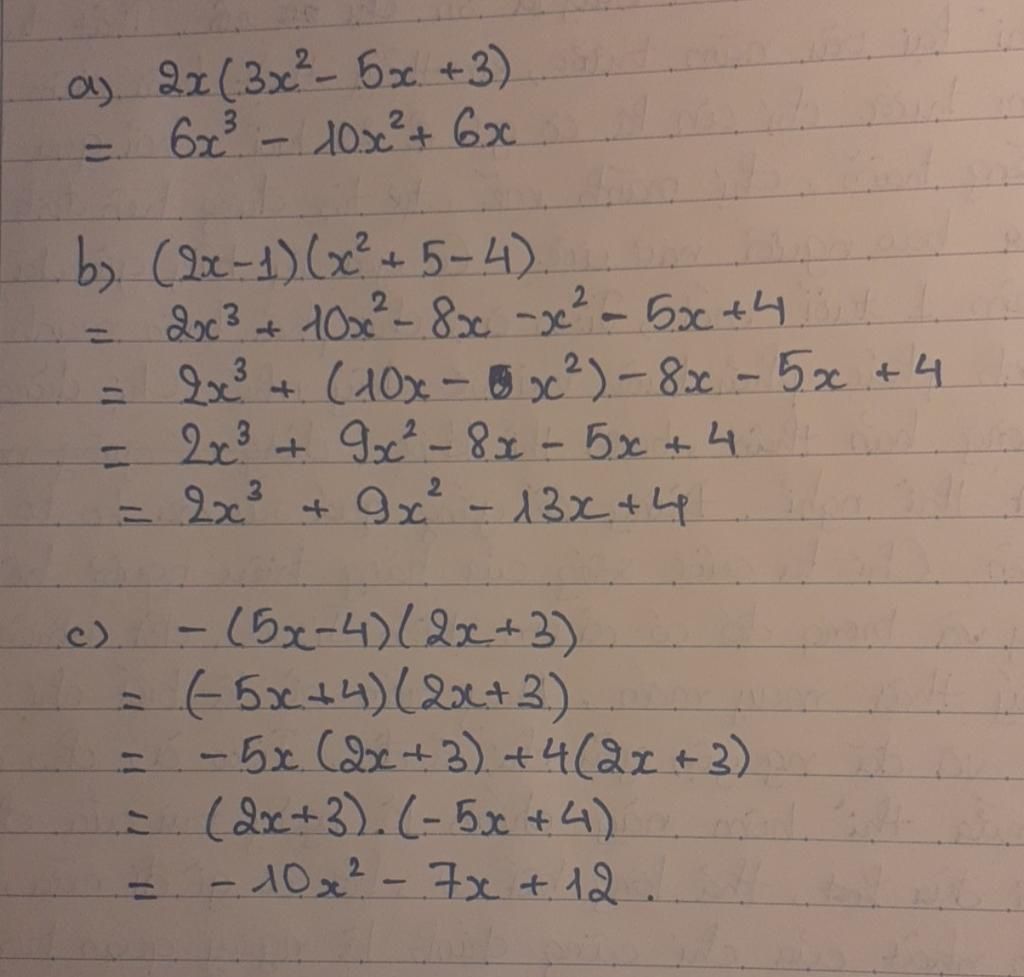 a) 2x(3x² - 5x + 3)
= 6x³ - 10x² + 6x
b) (2x-1)(x² + 5 - 4)
= 2x³ + 10x² - 8x - x² - 5x + 4
= 2x³ + (10x - x²) - 8x - 5x + 4
= 2x³ + 9x² - 8x - 5x + 4
= 2x³ + 9x² - 13x + 4
c) - (5x-4)(2x+3)
= (-5x+4)(2x+3)
= -5x (2x+3) + 4(2x+3)
= (2x+3).(-5x+4)
= -10x² - 7x + 12.